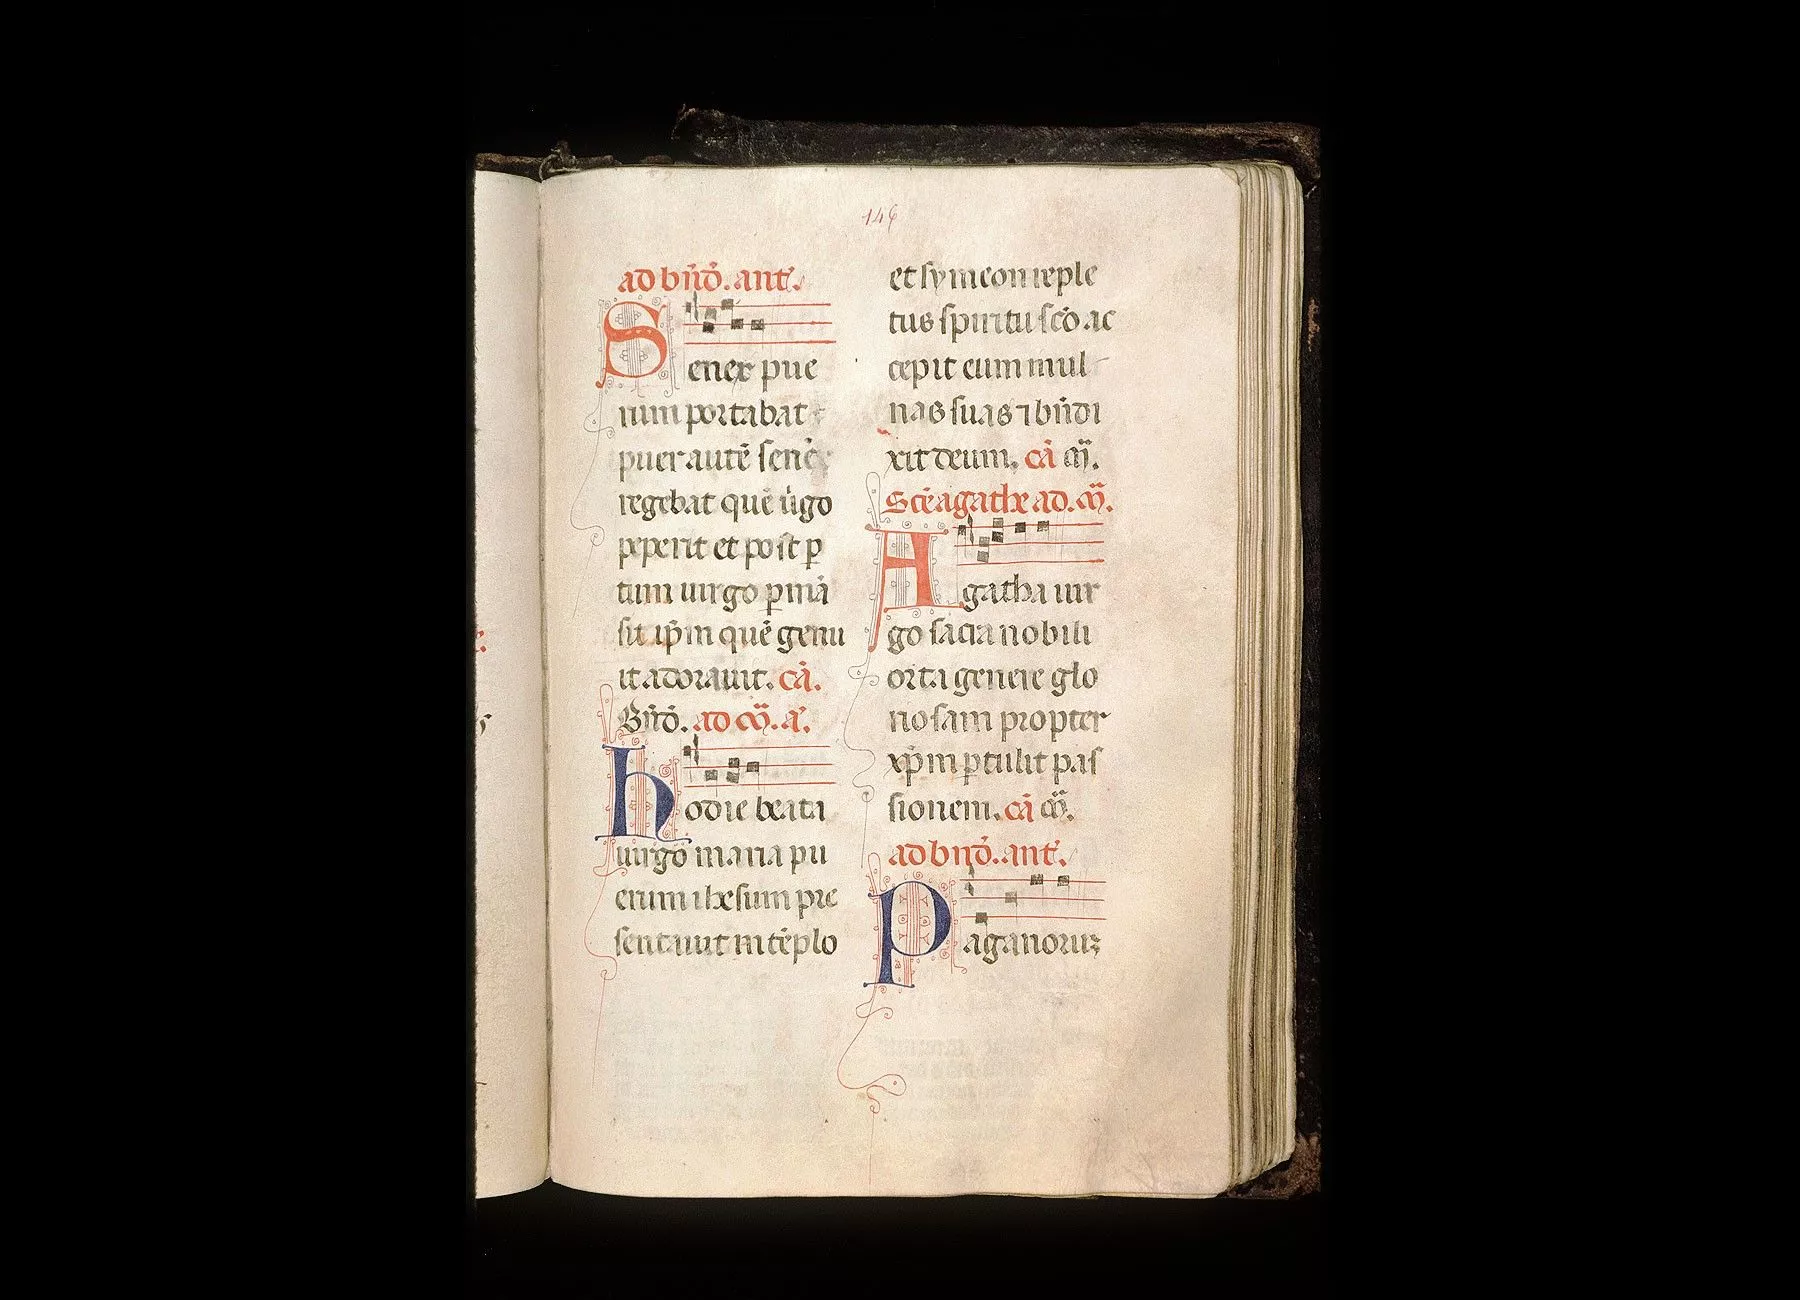 146
ad bn̄d̄. ant̄.
Senex pue
rum portabat
puer autē senē
regebat quē ŭgo
peperit et post p
tum uirgo ꝑmā
sit ip̄m quē genu
it adorauit. cā.
Bn̄d̄. ad m̄. a.
hodie beata
uirgo maria pu
erum ihesum pre
sentauit in tēplo
et symeon reple
tus spiritu sc̄o ac
cepit eum in ul
nas suas ⁊ bn̄di
xit deum. cā m̄.
Scē agathe ad. m̄.
Agatha uir
go sacra nobili
orta genere glo
riosam propter
xp̄m ꝑtulit pas
sionem. cā m̄.
ad bn̄d̄. ant̄.
Paganoruꝫ